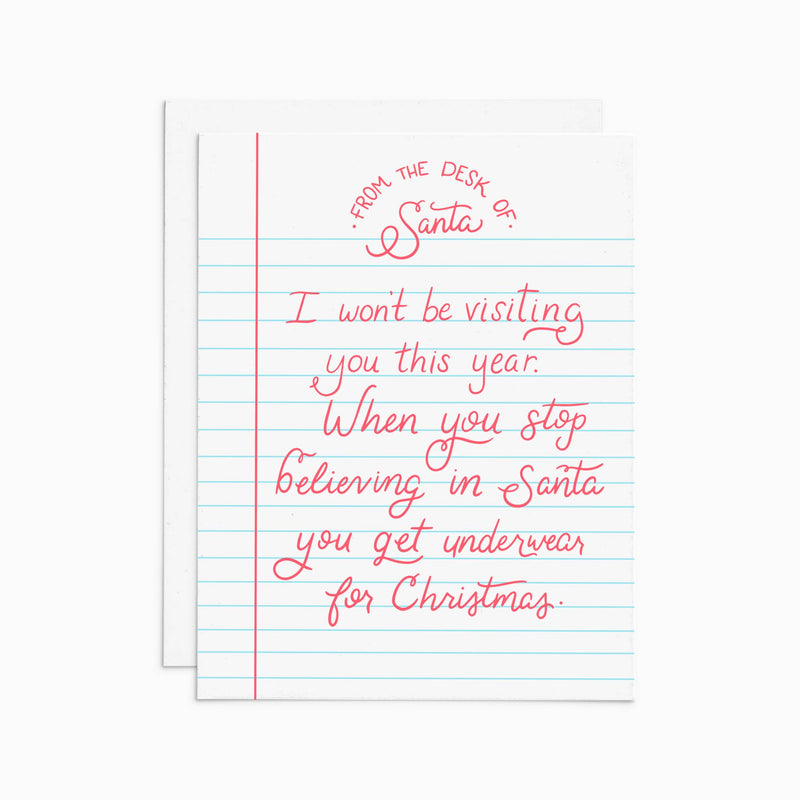 ·FROM THE DESK OF·
Santa
I won't be visiting
you this year.
When you stop
believing in Santa
you get underwear
for Christmas.